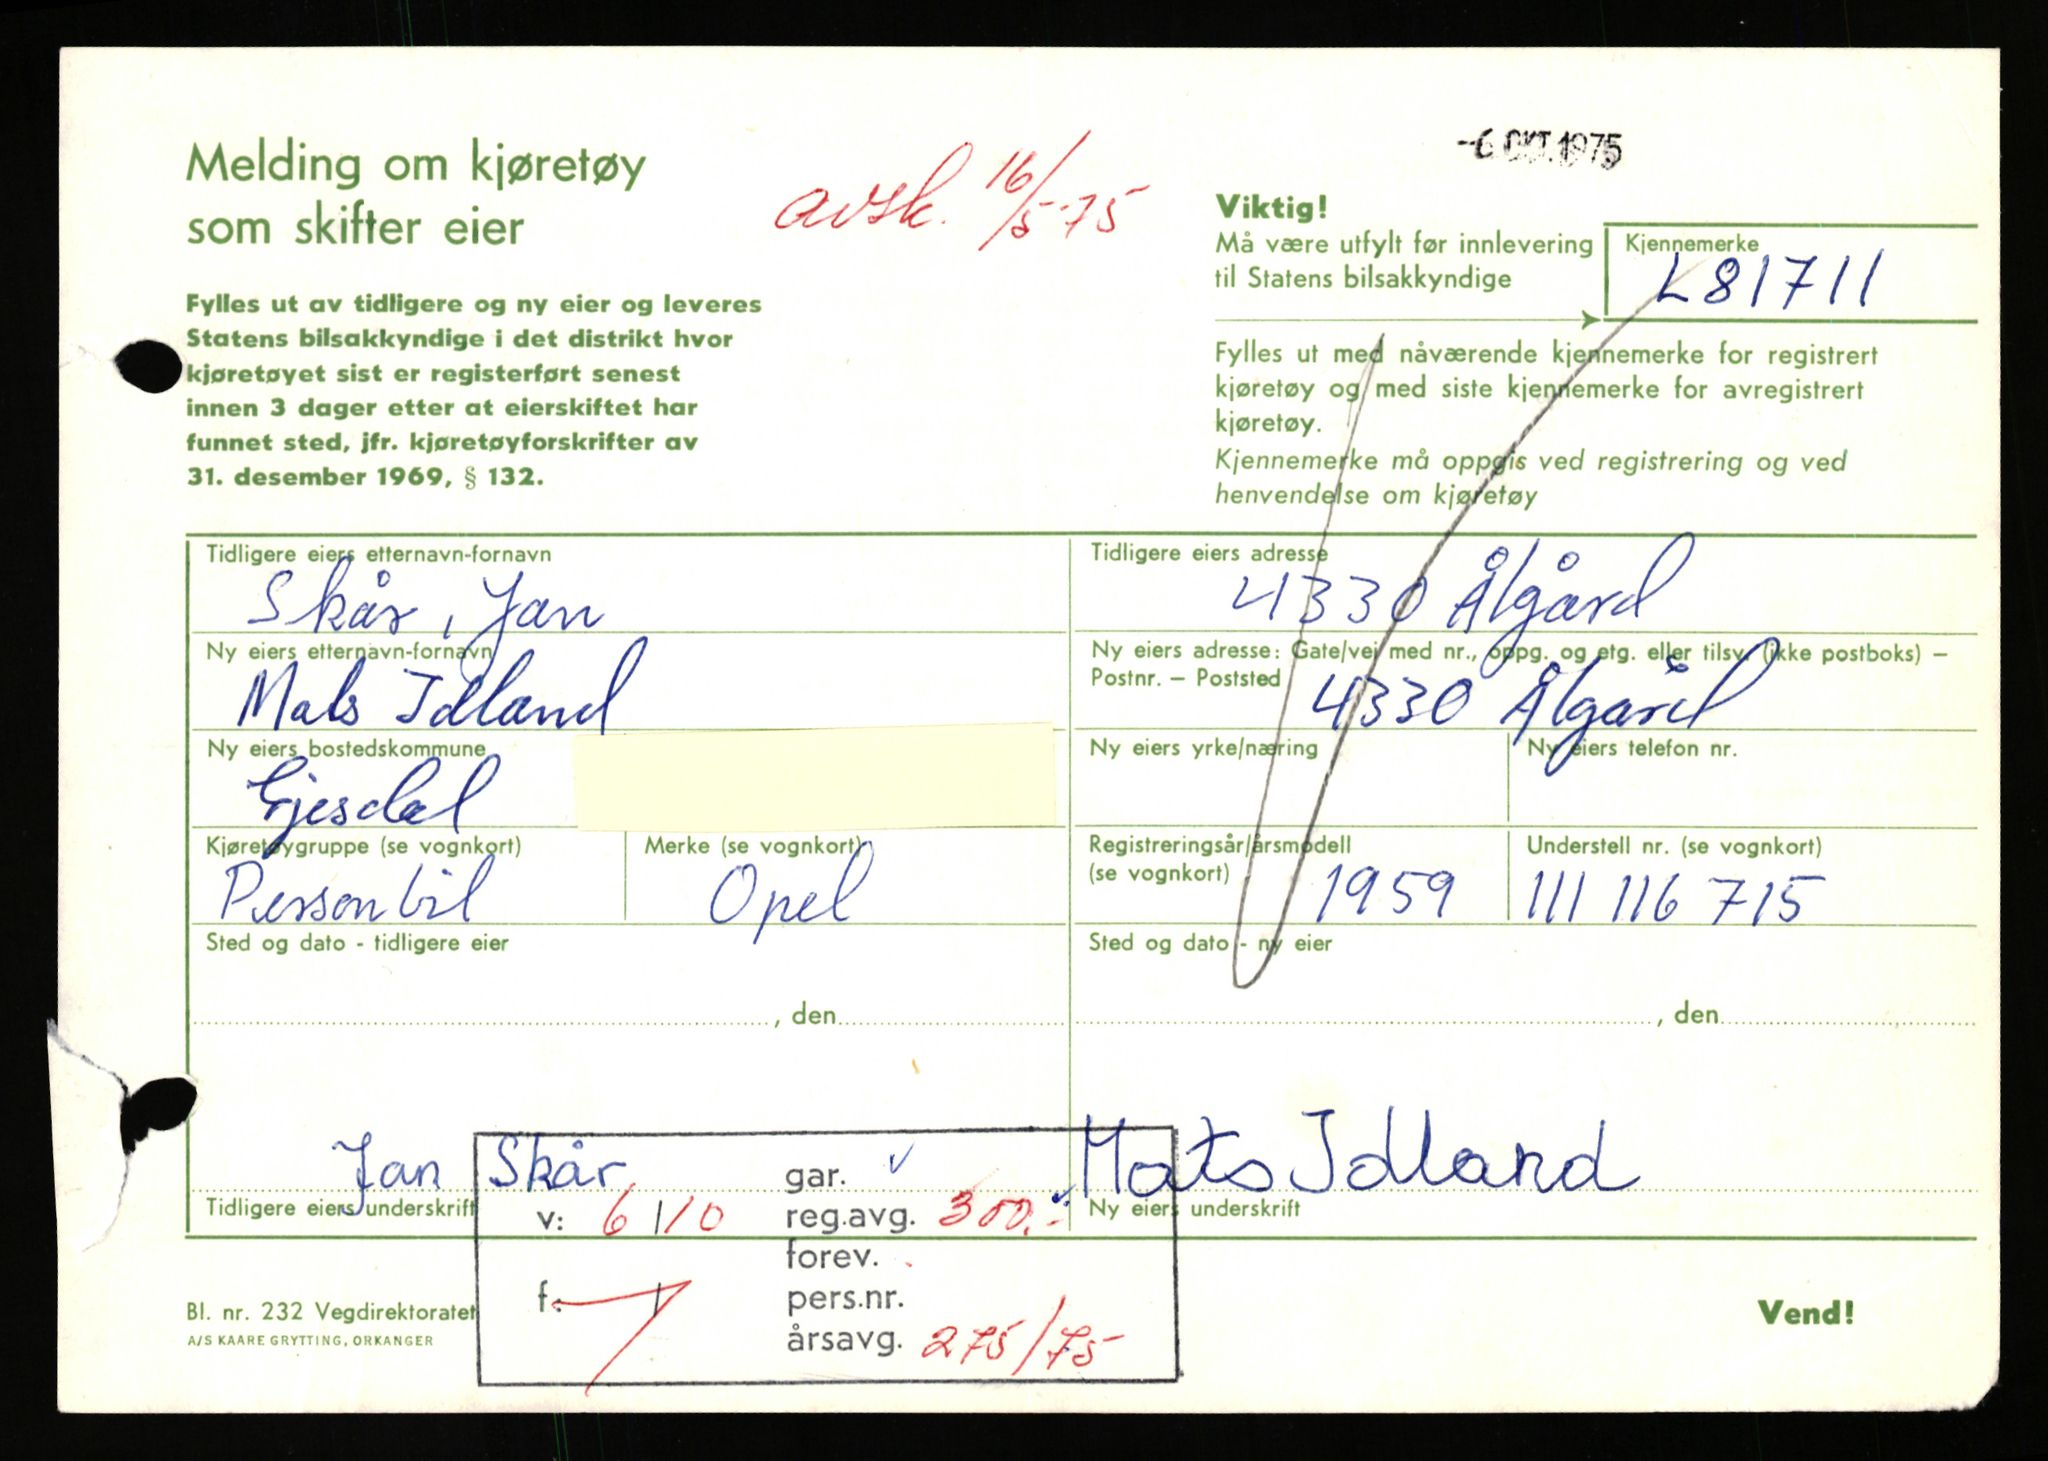 Melding om kjøretøy
som skifter eier
avsk. 16/5-75
-6 OKT. 1975
Fylles ut av tidligere og ny eier og leveres
Statens bilsakkyndige i det distrikt hvor
kjøretøyet sist er registerført senest
innen 3 dager etter at eierskiftet har
funnet sted, jfr. kjøretøyforskrifter av
31. desember 1969, § 132.
Viktig!
Må være utfylt før innlevering
til Statens bilsakkyndige
Kjennemerke
L81711
Fylles ut med nåværende kjennemerke for registrert
kjøretøy og med siste kjennemerke for avregistrert
kjøretøy.
Kjennemerke må oppgis ved registrering og ved
henvendelse om kjøretøy
Tidligere eiers etternavn-fornavn
Skår, Jan
Tidligere eiers adresse
4330 Ålgård
Ny eiers etternavn-fornavn
Mats Idland
Ny eiers adresse: Gate/vei med nr., oppg. og etg. eller tilsv. (ikke postboks) –
Postnr. – Poststed
4330 Ålgård
Ny eiers bostedskommune
Gjesdal
Ny eiers yrke/næring
Ny eiers telefon nr.
Kjøretøygruppe (se vognkort)
Personbil
Merke (se vognkort)
Opel
Registreringsår/årsmodell
(se vognkort)
1959
Understell nr. (se vognkort)
111 116 715
Sted og dato - tidligere eier
Sted og dato - ny eier
, den
, den
Jan Skår
Mats Idland
Tidligere eiers underskrift
Ny eiers underskrift
gar. ✓
v: 6/10
reg.avg. 300,-
forev.
f:
pers.nr.
årsavg. 275/75
Bl. nr. 232 Vegdirektoratet
A/S KAARE GRYTTING, ORKANGER
Vend!